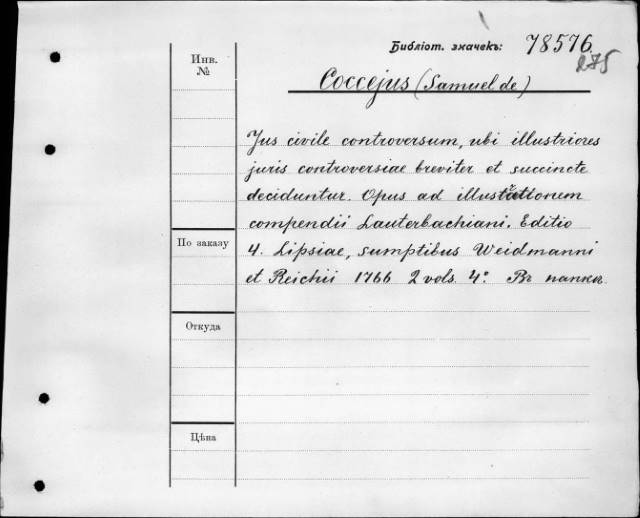 Библіот. значекъ: 78576.
275
Инв.
№
Coccejus (Samuel de)
Jus civile controversum, ubi illustriores
juris controversiae breviter et succincte
deciduntur. Opus ad illustrationem
compendii Lauterbachiani. Editio
4. Lipsiae, sumptibus Weidmanni
et Reichii 1766 2 vols. 4°. Вг папка.
По заказу
Откуда
Цѣна